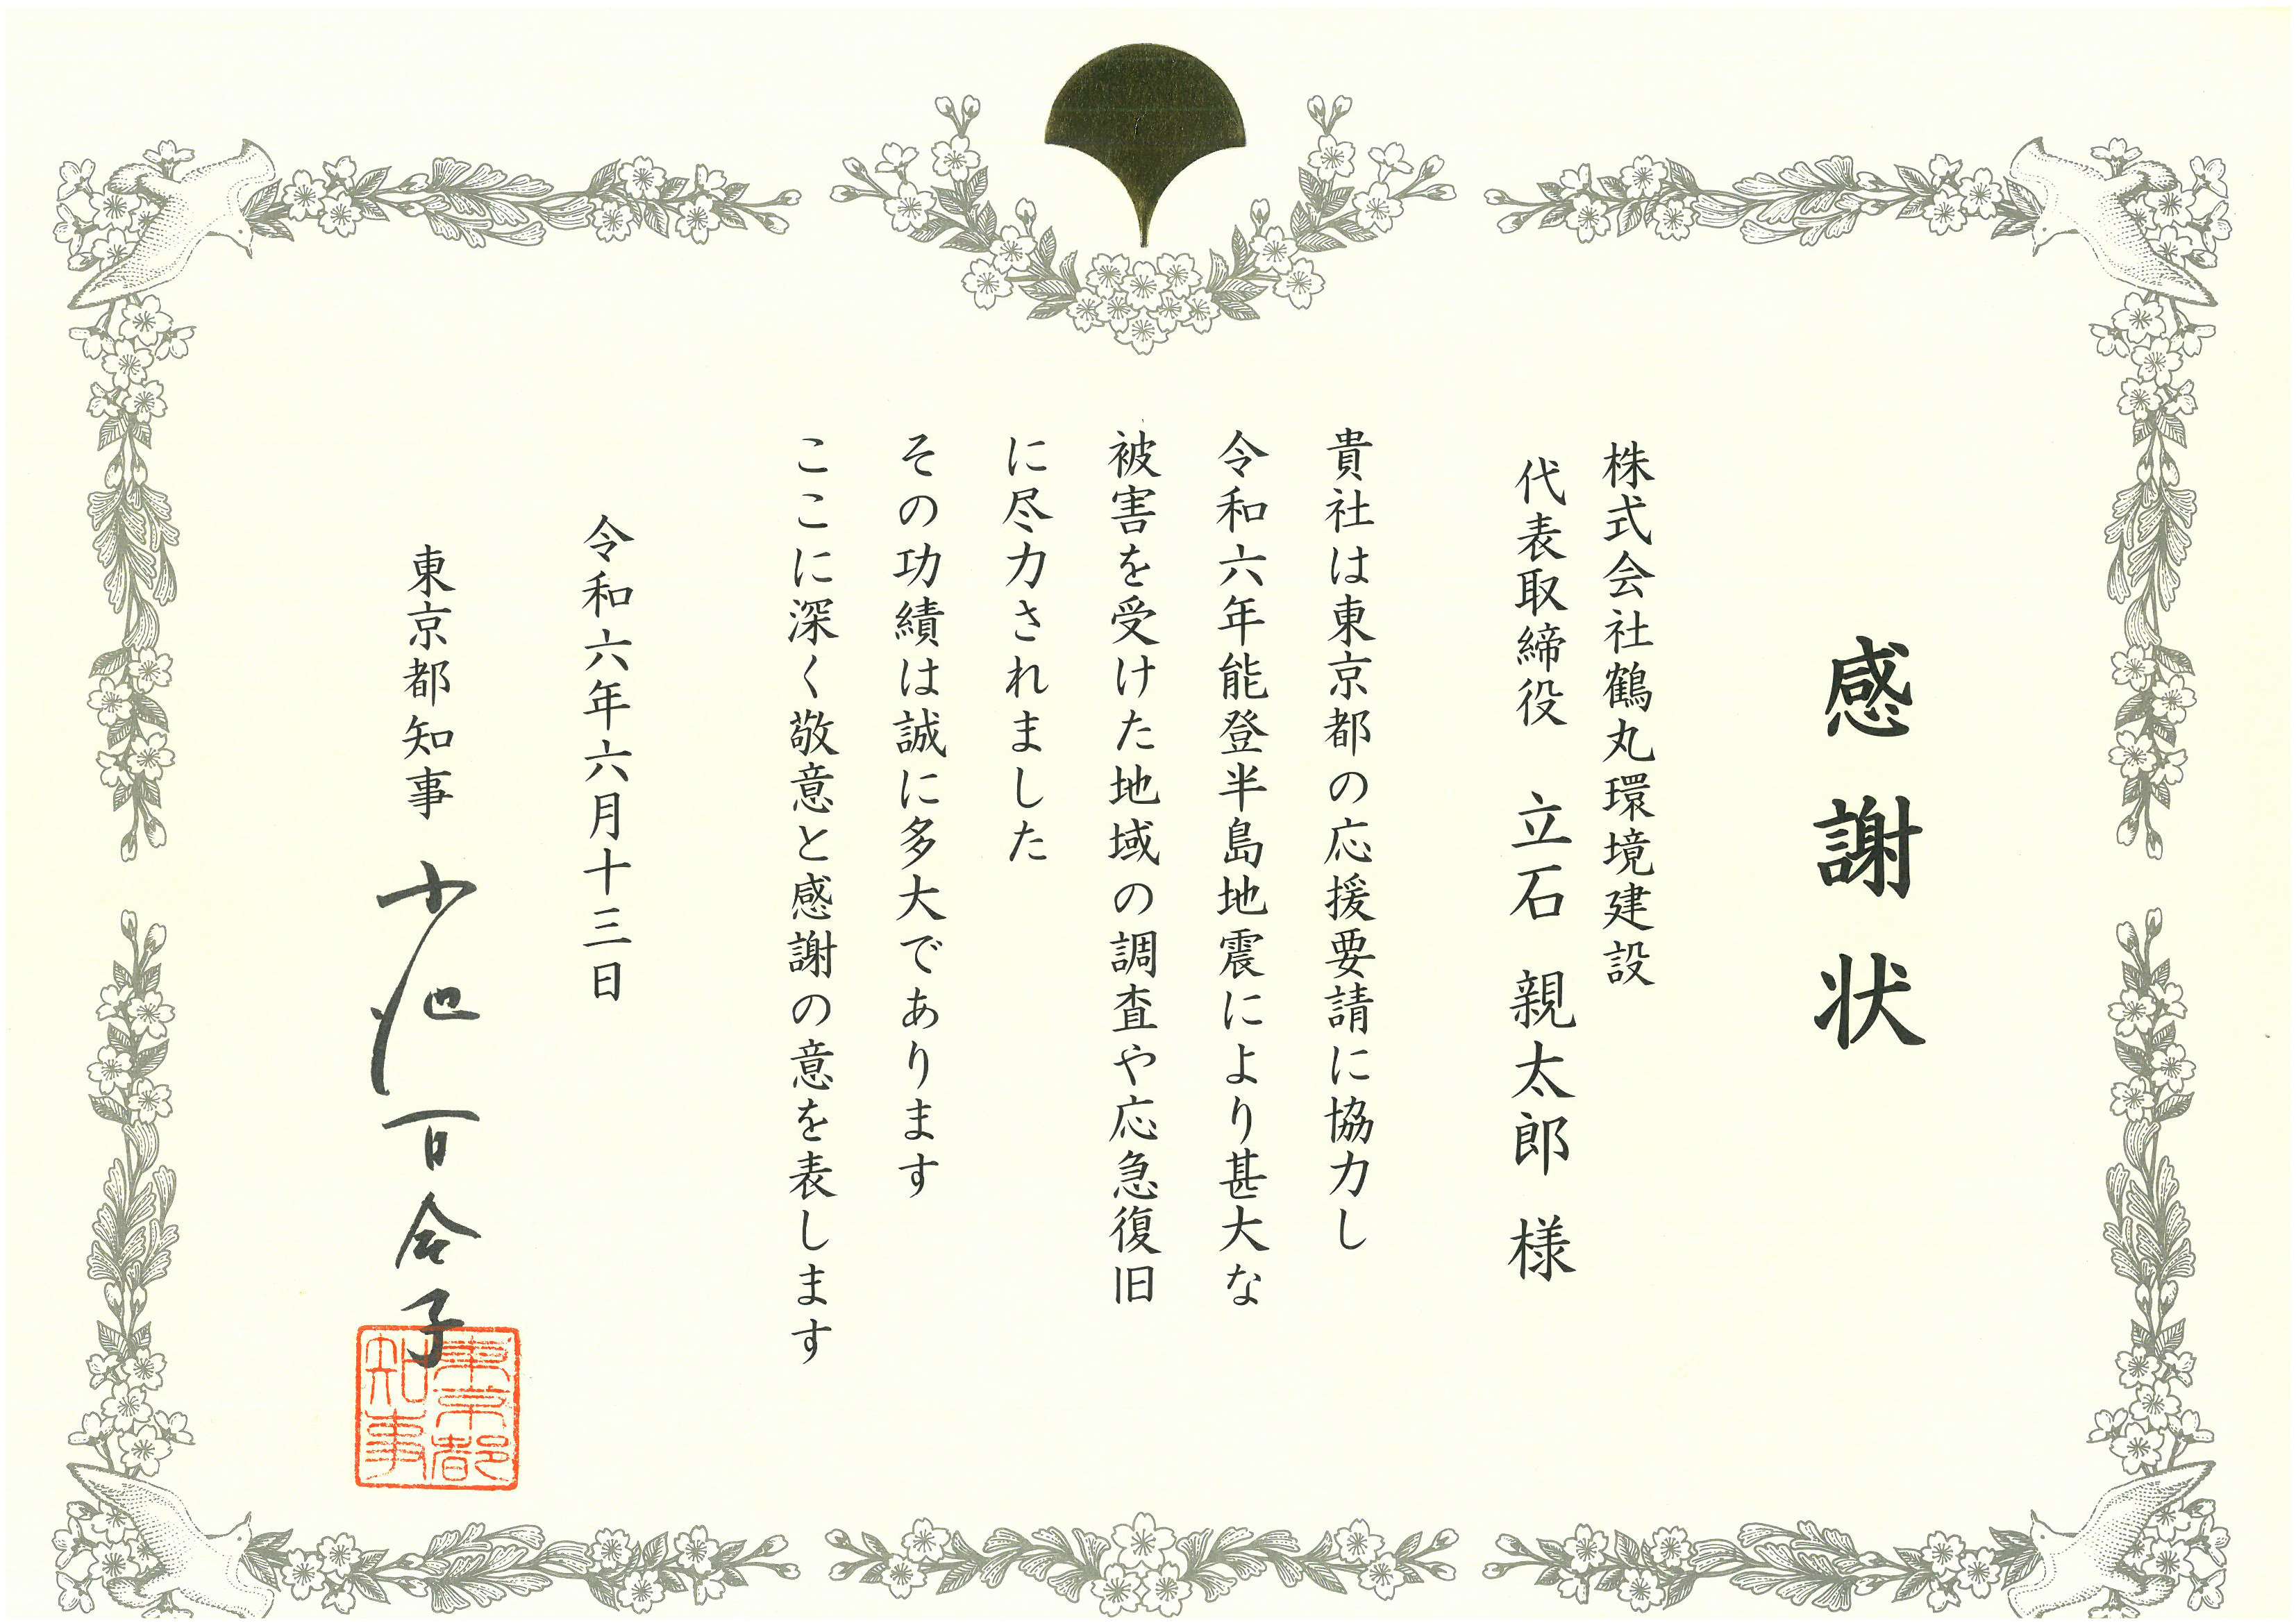 感謝状
株式会社鶴丸環境建設
代表取締役 立石 親太郎 様
貴社は東京都の応援要請に協力し
令和六年能登半島地震により甚大な
被害を受けた地域の調査や応急復旧
に尽力されました
その功績は誠に多大であります
ここに深く敬意と感謝の意を表します
令和六年六月十三日
東京都知事 小池百合子
東京都
知事